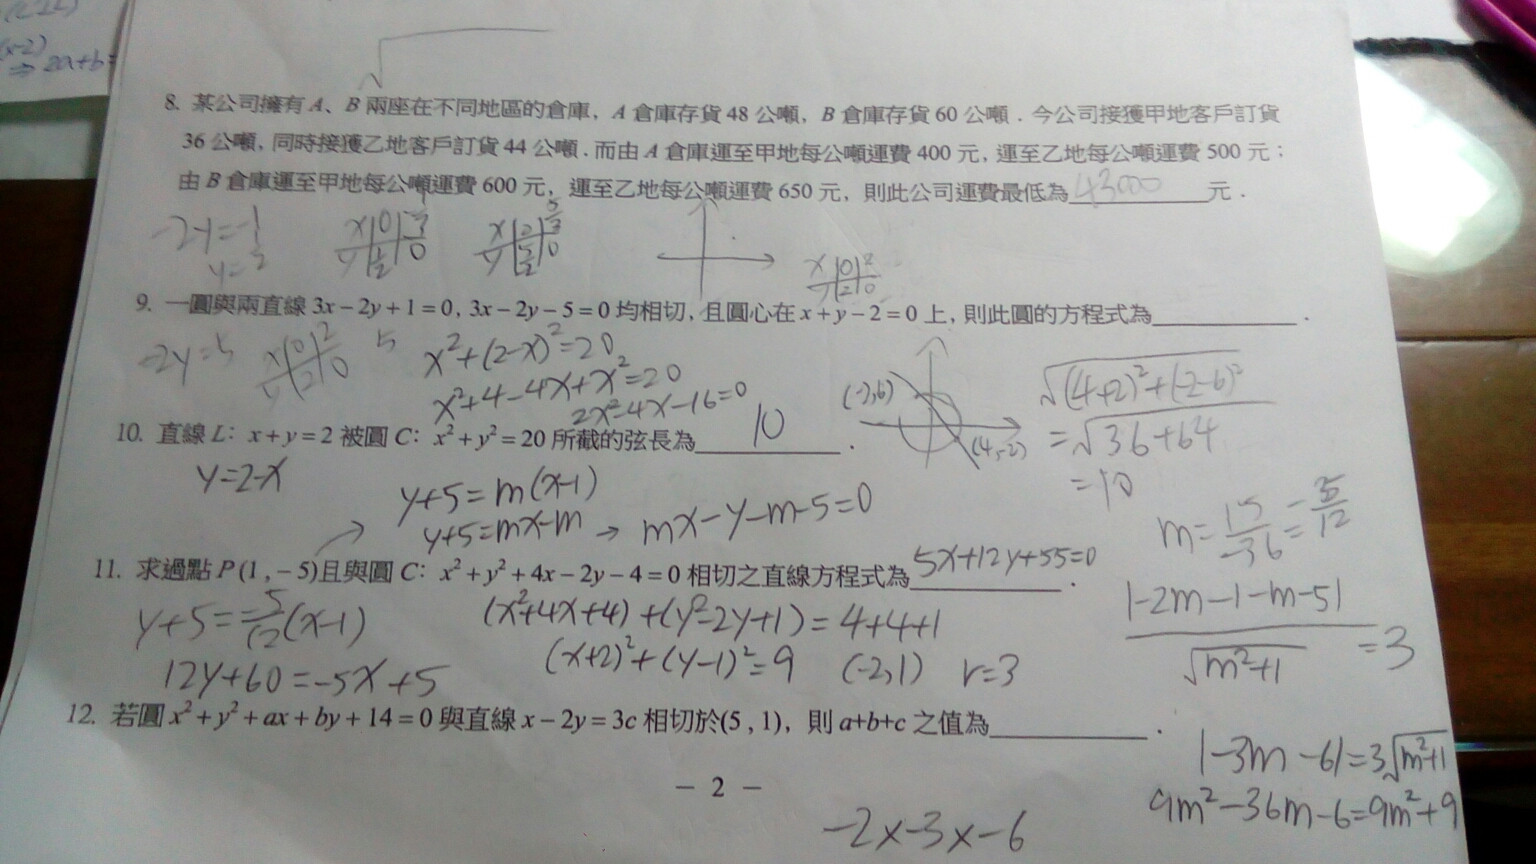 ⇒ 2a+b=
8. 某公司擁有 A、B 兩座在不同地區的倉庫, A 倉庫存貨 48 公噸, B 倉庫存貨 60 公噸．今公司接獲甲地客戶訂貨
36 公噸, 同時接獲乙地客戶訂貨 44 公噸．而由 A 倉庫運至甲地每公噸運費 400 元, 運至乙地每公噸運費 500 元；
由 B 倉庫運至甲地每公噸運費 600 元, 運至乙地每公噸運費 650 元, 則此公司運費最低為 43000 元．
-2y=-1
9. 一圓與兩直線 3x-2y+1=0, 3x-2y-5=0 均相切, 且圓心在 x+y-2=0 上, 則此圓的方程式為__________．
-2y=5
5
x²+(2-x)²=20
x²+4-4x+x²=20
2x²-4x-16=0
(-2,6)
(4,-2)
√(4+2)²+(-2-6)²
=√36+64
=10
10. 直線 L：x+y=2 被圓 C：x²+y²=20 所截的弦長為 10 ．
y=2-x
y+5=m(x-1)
y+5=mx-m → mx-y-m-5=0
m=15/-36=-5/12
11. 求過點 P(1,-5)且與圓 C：x²+y²+4x-2y-4=0 相切之直線方程式為 5x+12y+55=0 ．
y+5=-5/12(x-1)
12y+60=-5x+5
(x²+4x+4)+(y²-2y+1)=4+4+1
(x+2)²+(y-1)²=9 (-2,1) r=3
|-2m-1-m-5|/√m²+1=3
12. 若圓 x²+y²+ax+by+14=0 與直線 x-2y=3c 相切於(5,1), 則 a+b+c 之值為__________．
|-3m-6|=3√m²+1
9m²-36m-6=9m²+9
-2x-3x-6
- 2 -